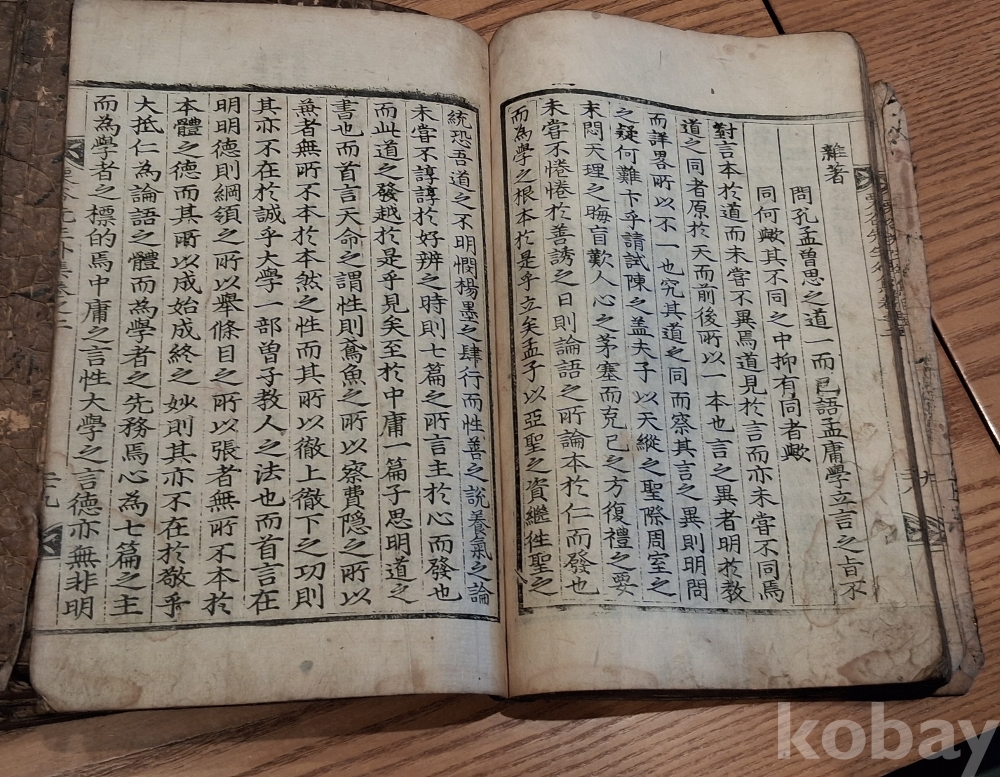 雜著
問孔孟曾思之道一而已語孟庸學立言之旨不
同何歟其不同之中抑有同者歟
對言本於道而未嘗不異焉道見於言而亦未嘗不同焉
道之同者原於天而前後所以一本也言之異者明於教
而詳畧所以不一也究其道之同而察其言之異則明問
之疑何難下乎請試陳之盖夫子以天縱之聖際周室之
末悶天理之晦盲歎人心之茅塞而克己之方復禮之要
未嘗不惓惓於善誘之日則論語之所論本於仁而發也
而為學之根本於是乎立矣孟子以亞聖之資繼徃聖之
統恐吾道之不明憫楊墨之肆行而性善之說養氣之論
未嘗不諄諄於好辨之時則七篇之所言主於心而發也
而此道之發越於是乎見矣至於中庸一篇子思明道之
書也而首言天命之謂性則鳶魚之所以察費隐之所以
兼者無所不本於本然之性而其所以徹上徹下之功則
其亦不在於誠乎大學一部曾子教人之法也而首言在
明明德則綱領之所以舉條目之所以張者無所不本於
本體之德而其所以成始成終之妙則其亦不在於敬乎
大抵仁為論語之體而為學者之先務焉心為七篇之主
而為學者之標的焉中庸之言性大學之言德亦無非明
kobay